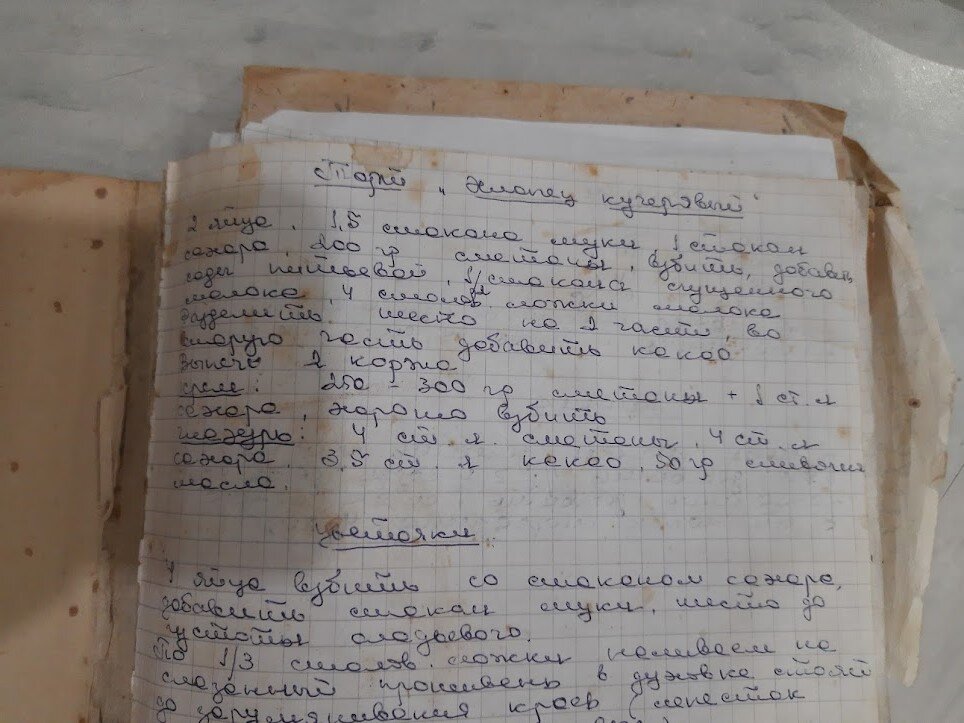 Торт „Хлопец кучерявый"
2 яйца, 1,5 стакана муки, 1 стакан
сахара, 200 гр сметаны, взбить, добавить
соды питьевой, 1/2 стакана сгущенного
молока, 4 столов ложки молока
Разделить тесто на 2 части, во
вторую часть добавить какао
Выпечь 2 коржа
крем: 250 - 300 гр сметаны + 1 ст. л
сахара, хорошо взбить
глазурь: 4 ст. л. сметаны, 4 ст. л
сахара, 3,5 ст. л какао, 50 гр сливочн
масла.
Цветочки
яйца взбить со стаканом сахара,
добавить стакан муки, тесто до
густоты оладьевого.
По 1/3 столов. ложки наливаем на
смазанный противень в духовке стоят
до зарумянивания краев лепесток